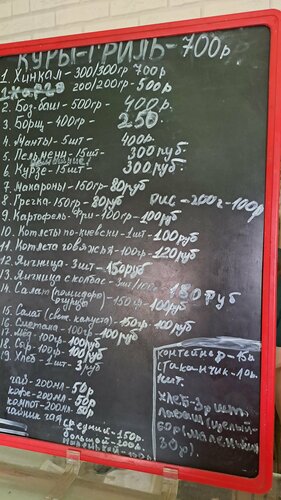 КУРЫ-ГРИЛЬ-700р
1. Хинкал-300/300гр 700р
1. Харчо 200/200гр-500р
2. Боз-баш-500гр- 400р.
3. Борщ-400гр- 250
4. Манты-5шт- 400р.
5. Пельмени-15шт- 300руб.
6. Курзе-15шт- 300руб.
7. Макароны-150гр 80руб
8. Гречка-150гр-80руб Рис-200г-100р
9. Картофель-Фри-100гр-100руб
10. Котлеты по-киевски-1шт-100руб
11. Котлета говяжья-100гр-120руб
12. Яичница-3шт-150руб
13. Яичница с колбас-3шт/100г-180руб
14. Салат (помидоро огурцы)-150гр-100руб
15. Салат (свеж. капуста)-150гр-100руб
16. Сметана-100гр-100руб
17. Мёд-100гр-100руб
18. Сыр-100гр-100руб
19. Хлеб-1шт-3руб
чай-200мл-50р
кофе-200мл-50р
компот-200мл-50р
чайник чая
средний-150р.
большой-200р.
контейнер-15р
стаканчик-10р.
1шт.
хлеб-3р шт.
лаваш (целый-
60р (маленький
30р).